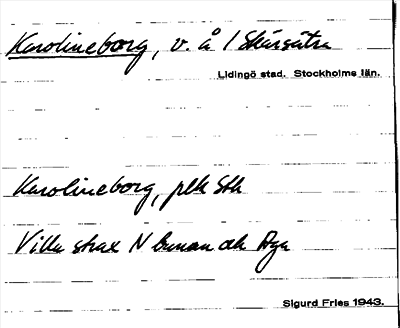 Karolineborg, v. å 1 Skärsätra
Lidingö stad. Stockholms län.
Karolineborg, plk Sth
Villa strax N banan och Aga
Sigurd Fries 1943.